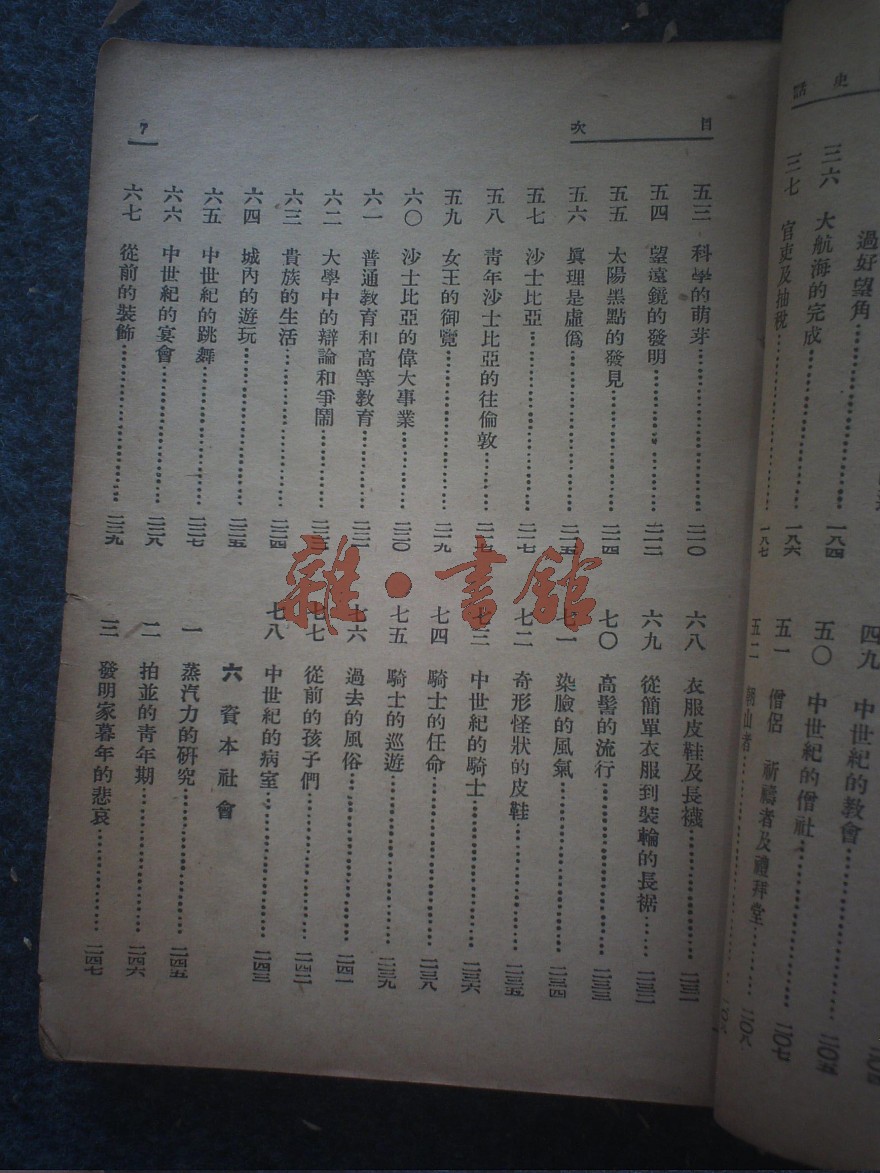 史話
過好望角
三六 大航海的完成 一八四
三七 官吏及抽稅 一八六
一八七
四九 中世紀的教會
五〇 中世紀的僧社 二〇五
五一 僧侶 祈禱者及禮拜堂 二〇七
二〇八
目次
7
五三 科學的萌芽 二一〇
五四 望遠鏡的發明 二一二
五五 太陽黑點的發見 二一四
五六 眞理是虛僞 二一五
五七 沙士比亞 二一七
五八 靑年沙士比亞的往倫敦 二一七
五九 女王的御覽 二一九
六〇 沙士比亞的偉大事業 二二〇
六一 普通敎育和高等敎育
六二 大學中的辯論和爭鬧
六三 貴族的生活 二二四
六四 城內的遊玩 二二五
六五 中世紀的跳舞 二二七
六六 中世紀的宴會 二二八
六七 從前的裝飾 二二九
六八 衣服皮鞋及長襪
六九 從簡單衣服到裝輪的長裾
七〇 高髻的流行 二三三
七一 染臉的風氣 二三四
七二 奇形怪狀的皮鞋 二三五
七三 中世紀的騎士 二三六
七四 騎士的任命 二三八
七五 騎士的巡遊 二三九
七六 過去的風俗 二四一
七七 從前的孩子們 二四二
七八 中世紀的病室 二四三
六 資本社會
一 蒸汽力的硏究 二四五
二 拍並的靑年期 二四六
三 發明家暮年的悲哀 二四七
雜·書館